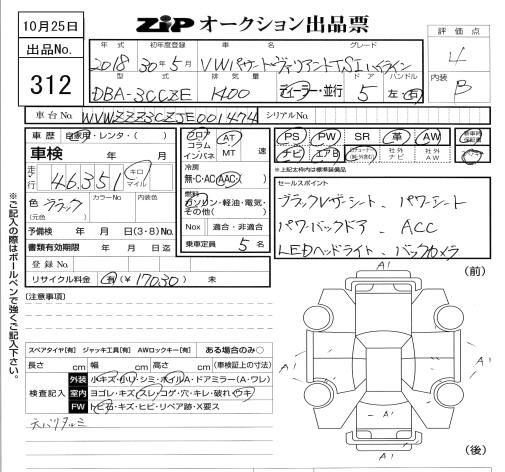 10月25日
ZIP オークション出品票
評価点
4
内装
B
出品No.
312
年式 初年度登録 車名 グレード
2018 30年5月 VWパサートヴァリアントTSIハイライン
型式 排気量 ドア ハンドル
DBA-3CCZE 1400 ディーラー・並行 5 左・右
車台No. WVWZZZ3CZJE001474 シリアルNo.
車歴 自家用・レンタ・( )
車検 年 月
走行 46,351 キロ マイル
色 ブラック カラーNo. 内装色
(元色)
予備検 年 月 日(3・8)No.
書類有効期限 年 月 日迄
登録No.
リサイクル料金 有(¥17030) 未
フロア コラム インパネ AT MT 速
冷房
無・C・AC・AAC
燃料
ガソリン・軽油・電気・
その他( )
Nox 適合・非適合
乗車定員 5 名
PS PW SR 革 AW
ナビ エアB 社外ナビ 社外AW
※上記太枠内は標準装備品
セールスポイント
ブラックレザーシート、パワーシート
パワーバックドア、ACC
LEDヘッドライト、バックカメラ
※ご記入の際はボールペンで強くご記入下さい。
(注意事項)
スペアタイヤ[有] ジャッキ工具[有] AWロックキー[有] ある場合のみ○
長さ cm 幅 cm 高さ cm (車検証上の寸法)
検査記入
外装 小キズ・小ハリ・シミ・ホイルA・ドアミラー(A・ワレ)
室内 ヨゴレ・キズ・スレ・コゲ・穴・キレ・破れ・ウキ
FW トビ石・キズ・ヒビ・リペア跡・X要ス
(前)
A1
A1
A1
A1
A1
(後)